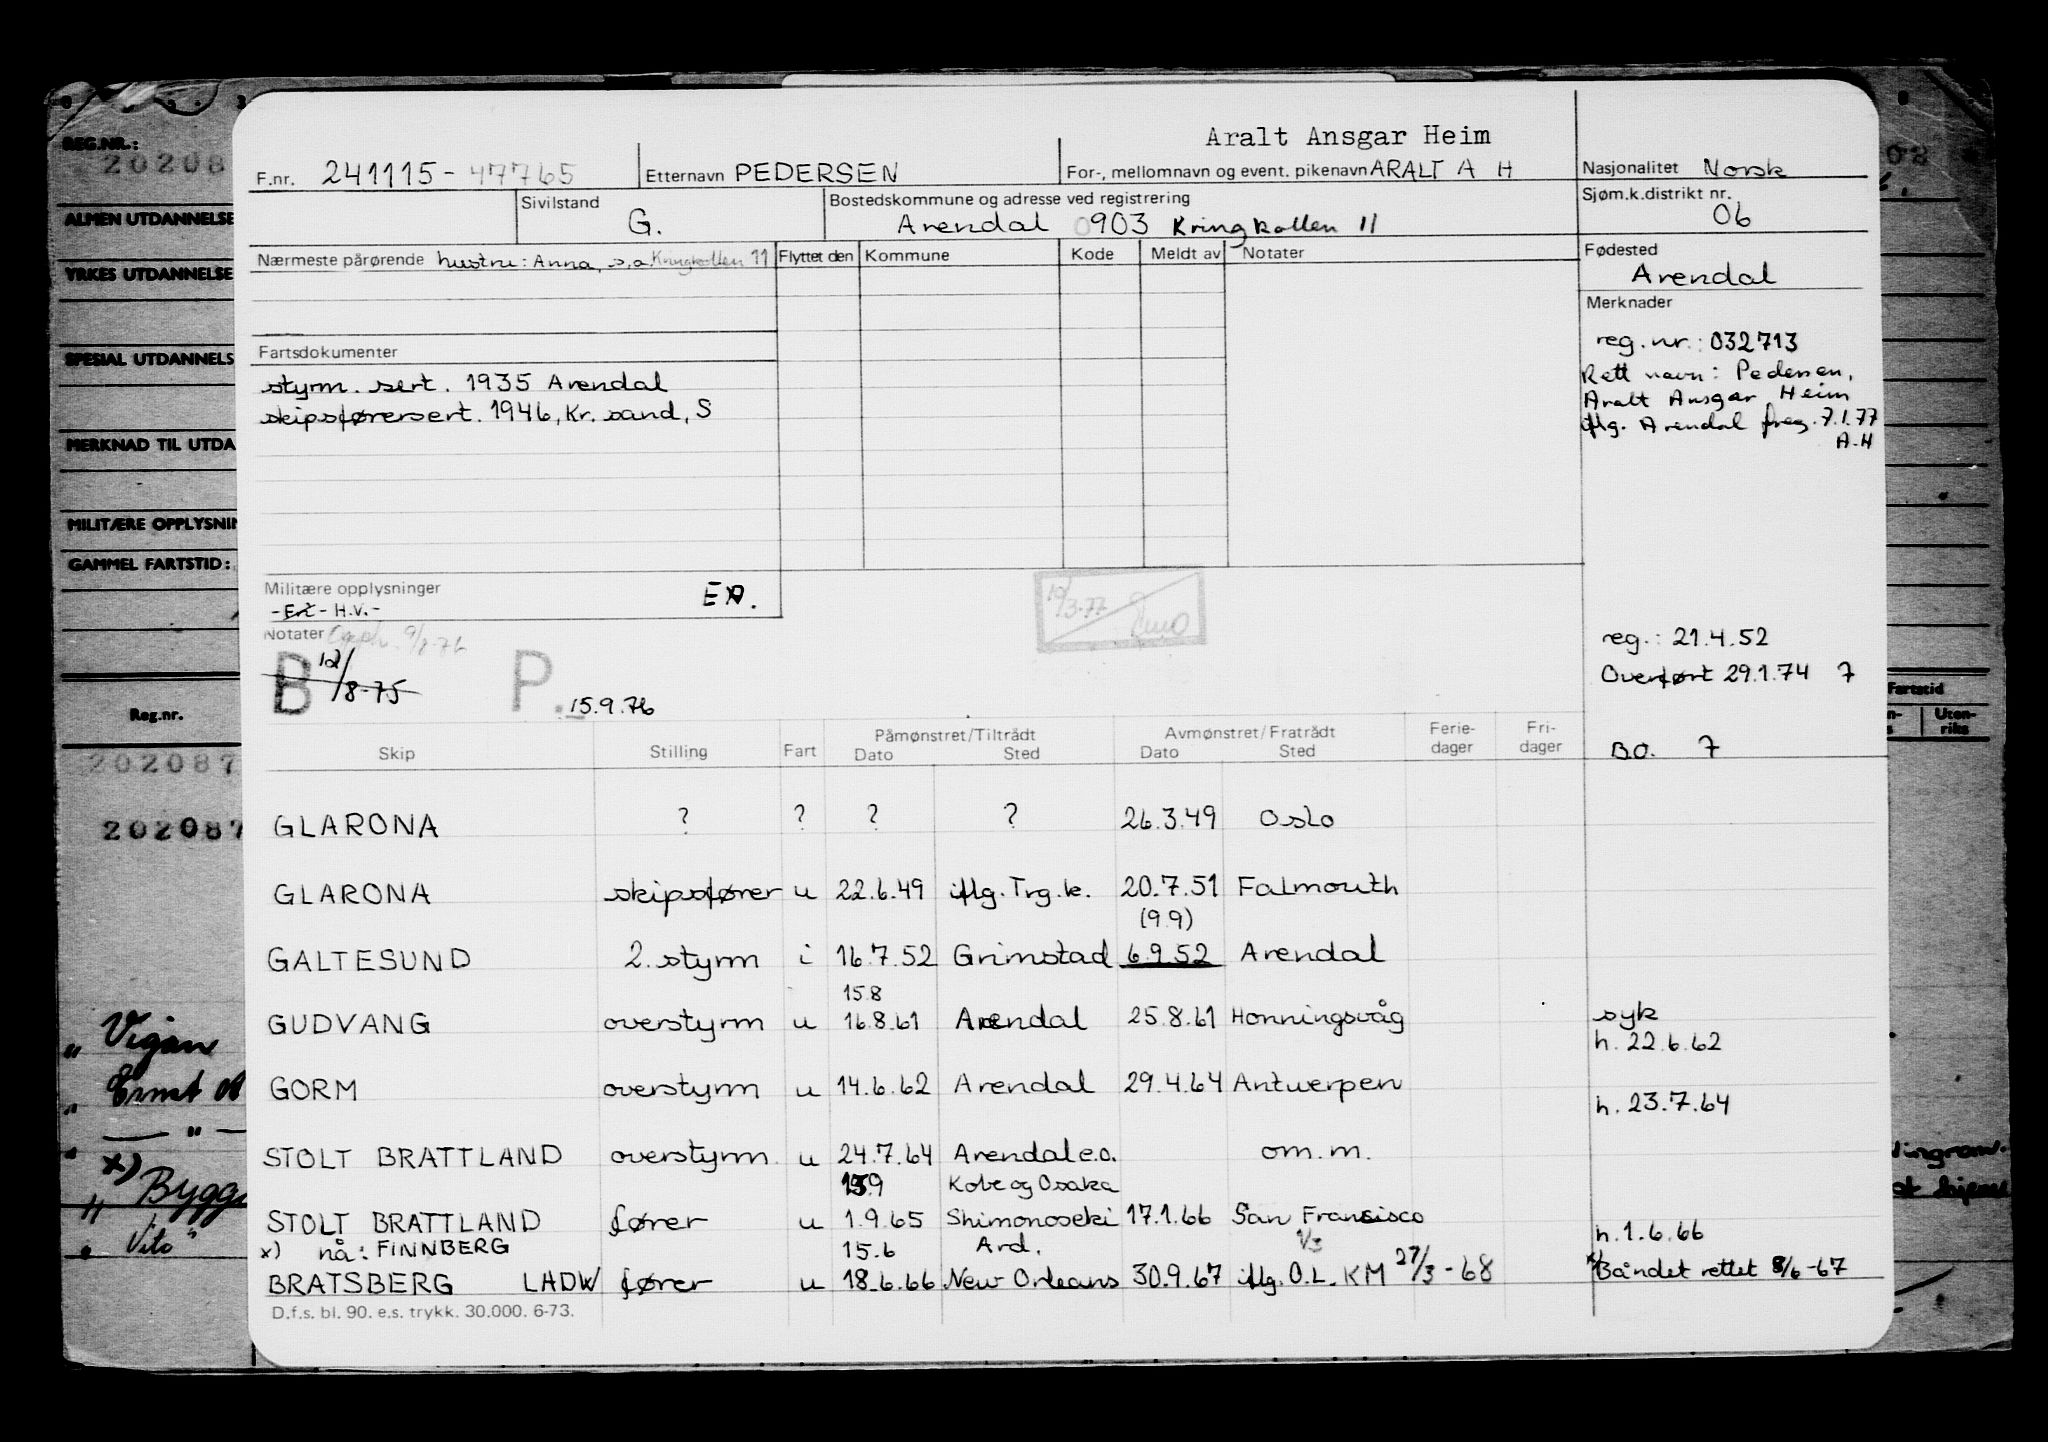 Aralt Ansgar Heim
F.nr. 241115-47765 Etternavn PEDERSEN For-, mellomnavn og event. pikenavn ARALT A H Nasjonalitet Norsk
Sivilstand G. Bostedskommune og adresse ved registrering Arendal 0903 Kringkollen 11 Sjøm.k.distrikt nr. 06
Nærmeste pårørende hustru: Anna, s.a. Kringkollen 11 Flyttet den Kommune Kode Meldt av Notater Fødested
Arendal
Merknader
reg.nr.: 032713
Rett navn: Pedersen,
Aralt Ansgar Heim
iflg. Arendal freg. 7.1.77
A.H
Fartsdokumenter
styrm. sert. 1935 Arendal
skipsførersert. 1946, Kr.sand, S
Militære opplysninger
- H.V.-
Notater 9/8-76
B 12/8-75 P. 15.9.76
10/3-77
reg.: 21.4.52
Overført 29.1.74 7
B.O. 7
Skip Stilling Fart Påmønstret/Tiltrådt Dato Sted Avmønstret/Fratrådt Dato Sted Ferie-dager Fri-dager
GLARONA ? ? ? ? 26.3.49 Oslo
GLARONA skipsfører u 22.6.49 iflg. Trg.k. 20.7.51 Falmouth
(9.9)
GALTESUND 2. styrm i 16.7.52 Grimstad 6.9.52 Arendal
15.8
GUDVANG overstyrm u 16.8.61 Arendal 25.8.61 Honningsvåg syk
h. 22.6.62
GORM overstyrm u 14.6.62 Arendal 29.4.64 Antwerpen
h. 23.7.64
STOLT BRATTLAND overstyrm u 24.7.64 Arendal e.o. om.m.
Kobe og Osaka
STOLT BRATTLAND fører u 1.9.65 Shimonoseki 17.1.66 San Francisco
h. 1.6.66
x) nå: FINNBERG 15.6 Ard.
BRATSBERG LADW fører u 18.6.66 New Orleans 30.9.67 iflg. O.L. KM 27/3-68 x) Båndet rettet 8/6-67
D.f.s. bl. 90. e.s. trykk. 30.000. 6-73.
REG.NR.:
20208
ALMEN UTDANNELSE
YRKES UTDANNELSE
SPESIAL UTDANNELS
MERKNAD TIL UTDA
MILITÆRE OPPLYSNIN
GAMMEL FARTSTID:
Reg.nr.
202087
202087
" Vigan
" Ernst
— " —
x)
" Bygg
" Vito"
Fartstid
Uten-
riks